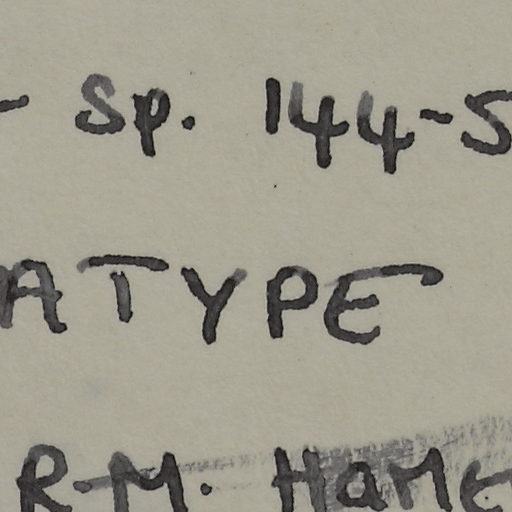 - Sp. 144-5
ATYPE
R.M. Hame